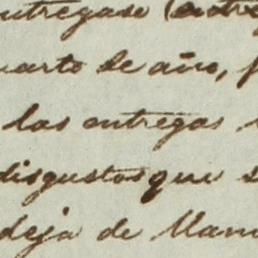 entregase (entre
uarto de año, f
las entregas
disgustos que s
deja de llam